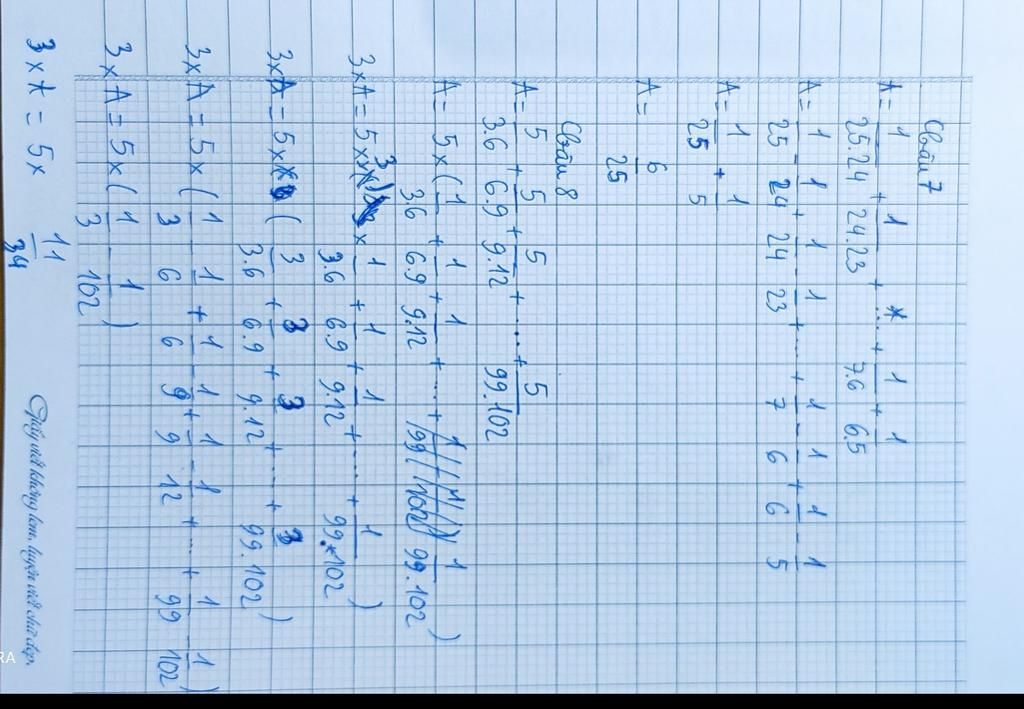 Câu 7
A = 1/25.24 + 1/24.23 + ... + 1/7.6 + 1/6.5
A = 1/25 - 1/24 + 1/24 - 1/23 + .... + 1/7 - 1/6 + 1/6 - 1/5
A = 1/25 + 1/5
A = 6/25
Câu 8
A = 5/3.6 + 5/6.9 + 5/9.12 + .... + 5/99.102
A = 5 x ( 1/3.6 + 1/6.9 + 1/9.12 + ... + 1/99.102 )
3 x A = 5 x 3 x 1/3.6 + 1/6.9 + 1/9.12 + .... + 1/99.102 )
3 x A = 5 x ( 3/3.6 + 3/6.9 + 3/9.12 + .... + 3/99.102 )
3 x A = 5 x ( 1/3 - 1/6 + 1/6 - 1/9 + 1/9 - 1/12 + ... + 1/99 - 1/102 )
3 x A = 5 x ( 1/3 - 1/102 )
3 x A = 5 x 11/34
Giấy viết không lem, luyện viết chữ đẹp.
RA